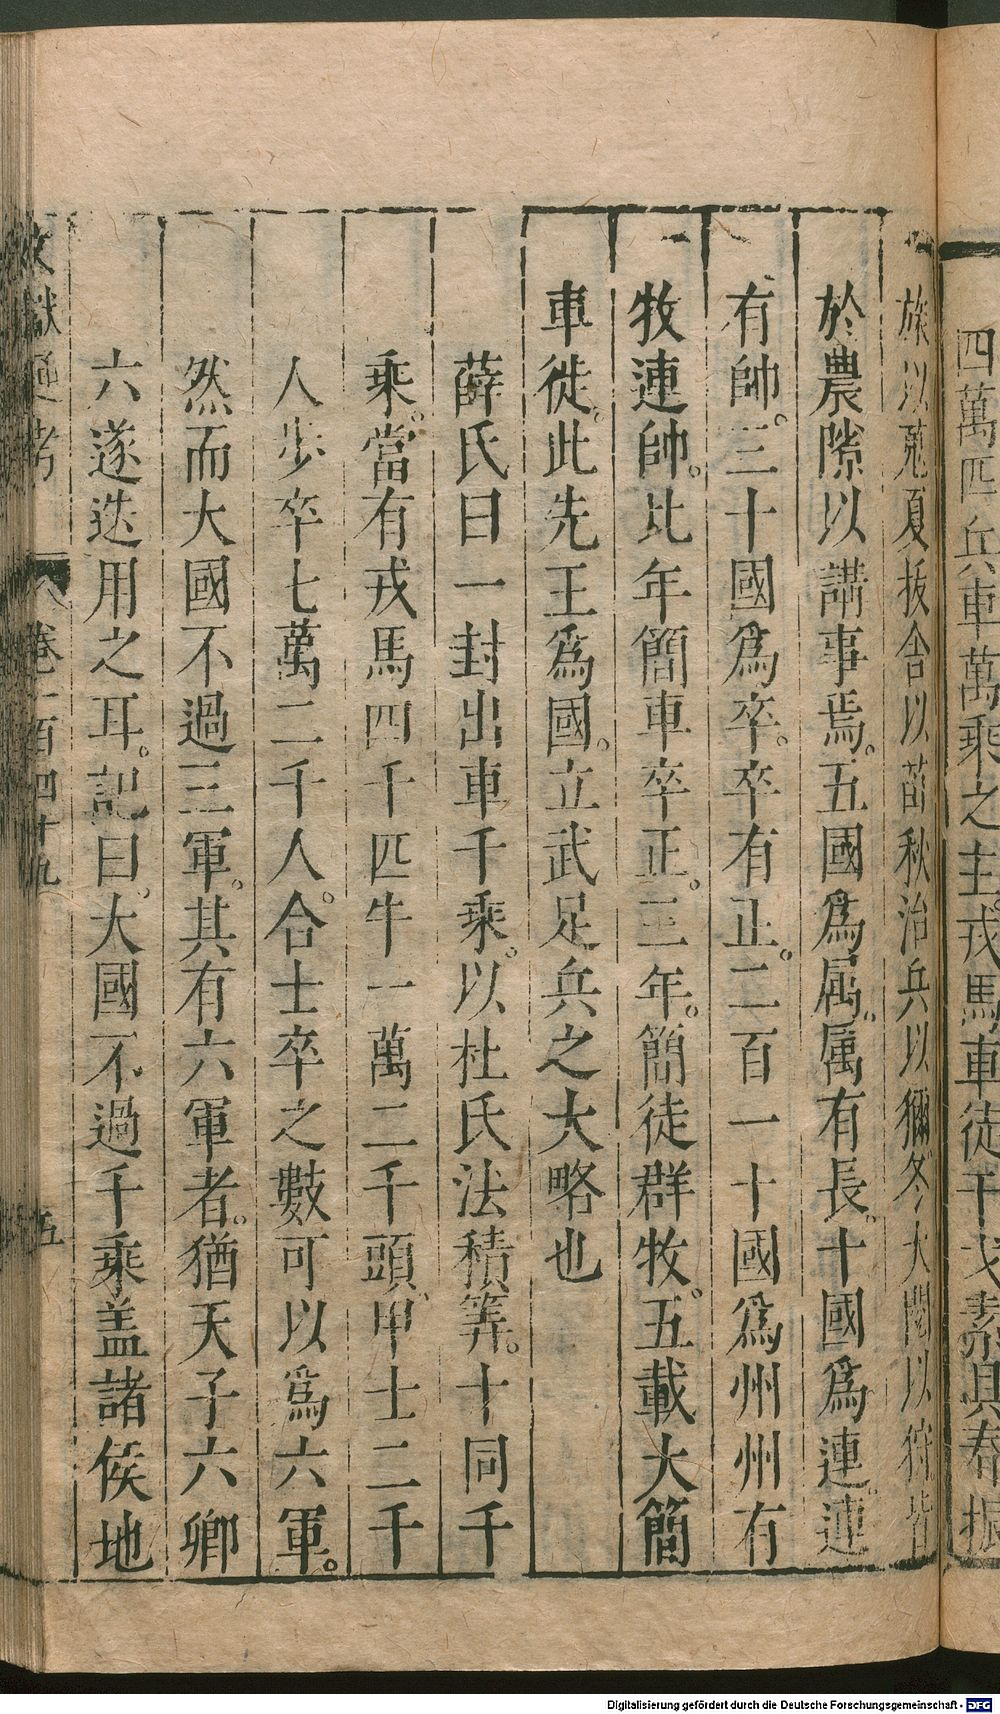 四萬匹兵車萬乘之主戎馬車徒干戈素具春振
旅以蒐夏拔舍以苗秋治兵以獮冬大閱以狩皆
於農隙以講事焉。五國爲属。属有長。十國爲連。連
有帥。三十國爲卒。卒有正。二百一十國爲州州有
牧連帥。比年簡車卒正。三年。簡徒群牧。五載大簡
車徙。此先王爲國。立武足兵之大略也
薛氏曰一封出車千乘。以杜氏法積筭。十同千
乘。當有戎馬四千匹牛一萬二千頭、甲士二千
人步卒七萬二千人。合士卒之數可以爲六軍。
然而大國不過三軍。其有六軍者。猶天子六卿
六遂迭用之耳。記曰。大國不過千乘盖諸侯地
文獻通考 卷一百四十九 五
Digitalisierung gefördert durch die Deutsche Forschungsgemeinschaft - DFG